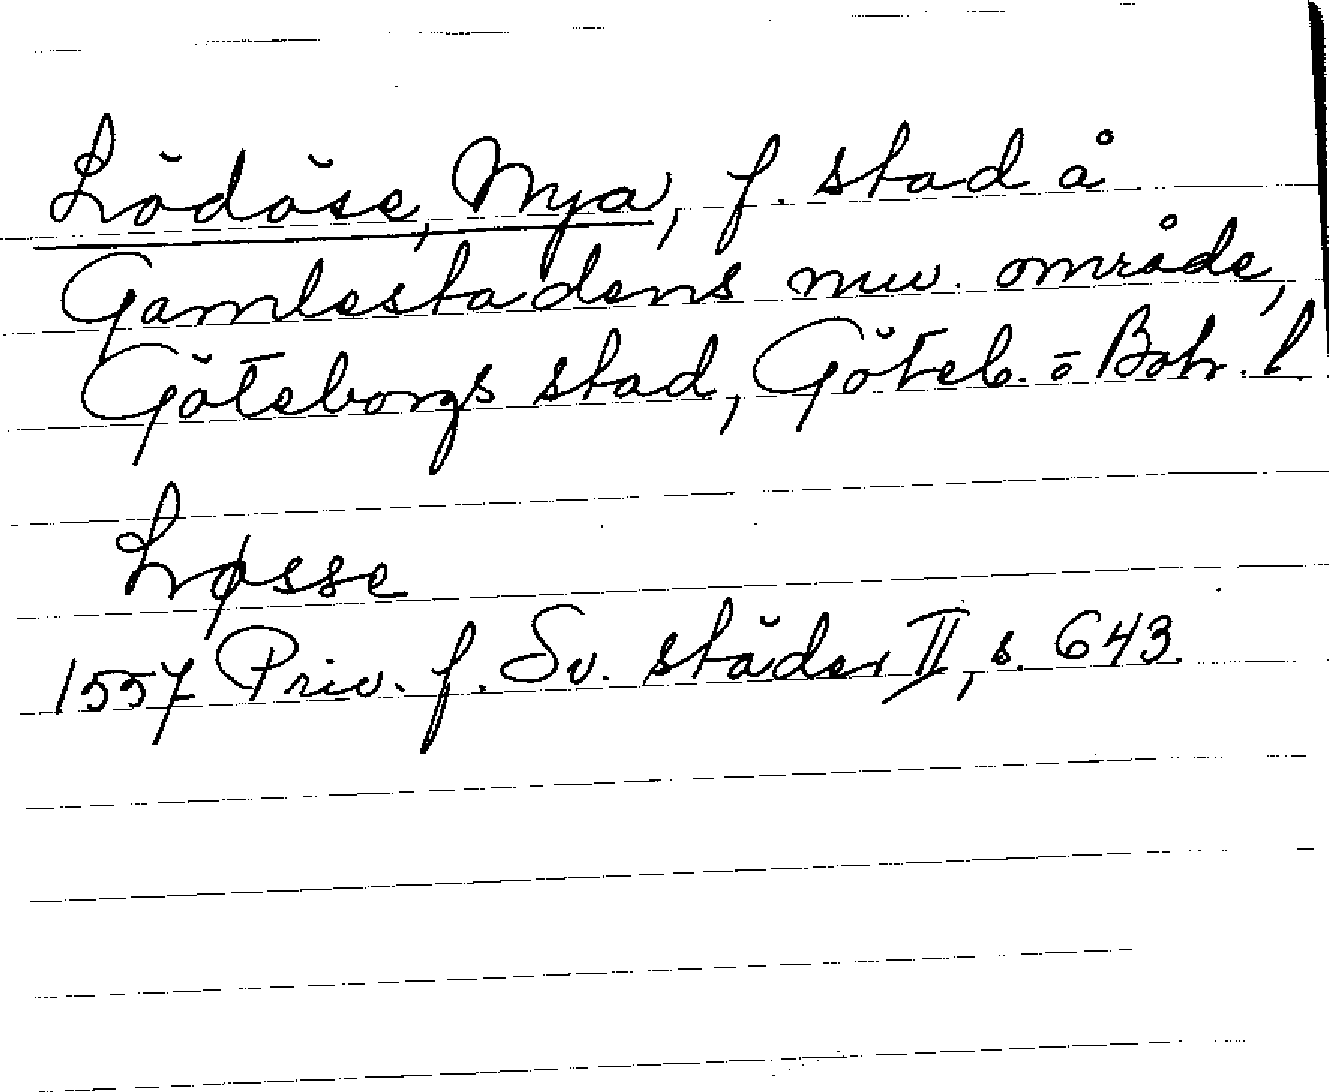 Lödöse, Nya, f. stad å
Gamlestadens nuv. område,
Göteborgs stad, Göteb. o Boh. l.
Løsse
1557 Priv. f. Sv. städer II, s. 643.